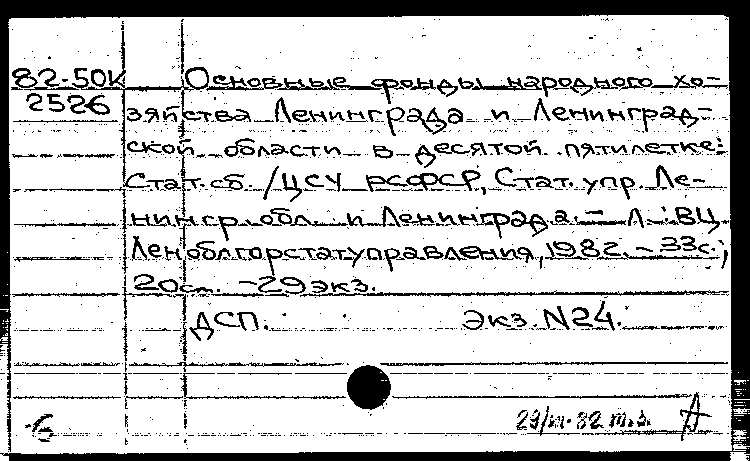 82-50К Основные фонды народного хо-
2526 зяйства Ленинграда и Ленинград-
ской области в десятой пятилетке:
Стат. сб. / ЦСУ РСФСР, Стат. упр. Ле-
нингр. обл. и Ленинграда. - Л.: ВЦ
Леноблгорстатуправления, 1982. - 33с.;
20см. - 29 экз.
ДСП. Экз. N24.
6